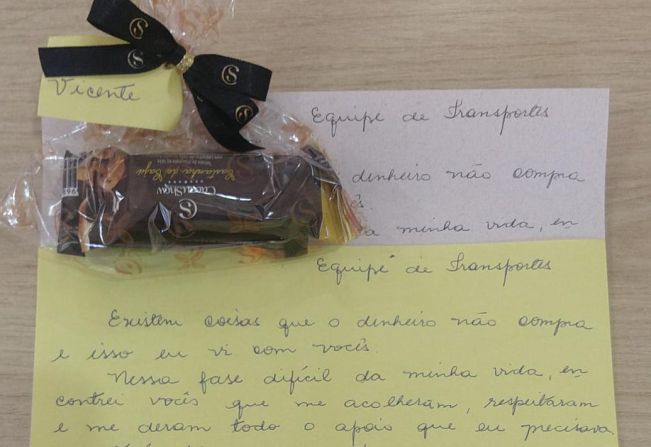 Vicente
Equipe de Transportes
dinheiro não compra
minha vida, en
CacauShow
Castanha de Caju
Equipe de Transportes
Existem coisas que o dinheiro não compra
e isso eu vi com vocês.
Nessa fase difícil da minha vida, en
contrei vocês que me acolheram, respeitaram
e me deram todo o apoio que eu precisava